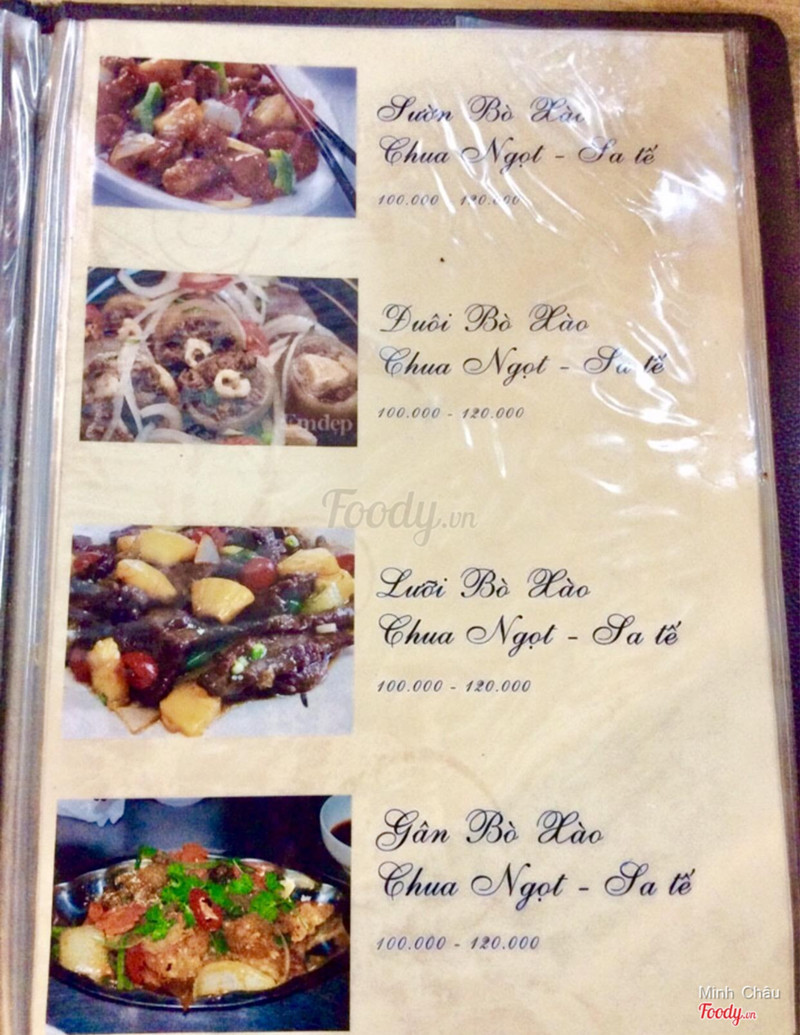 Sườn Bò Xào
Chua Ngọt - Sa tế
100.000 - 120.000
Đuôi Bò Xào
Chua Ngọt - Sa tế
100.000 - 120.000
Emdẹp
Foody.vn
Lưỡi Bò Xào
Chua Ngọt - Sa tế
100.000 - 120.000
Gân Bò Xào
Chua Ngọt - Sa tế
100.000 - 120.000
Minh Châu
Foody.vn